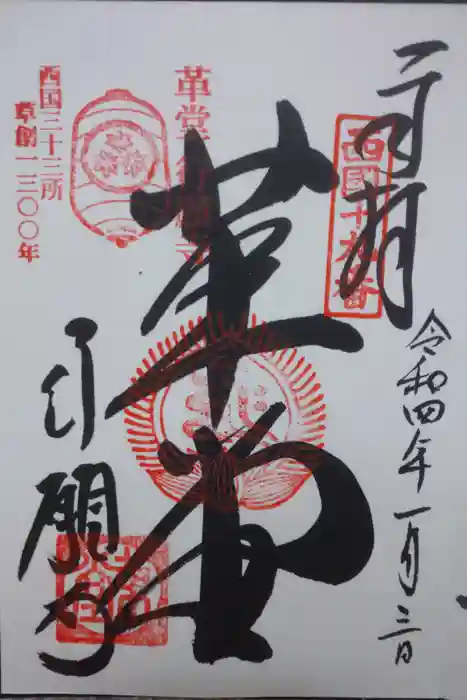 奉拝
令和四年一月三日
西国十九番
革堂
革堂行願寺
行願寺
西国三十三所
草創一三〇〇年